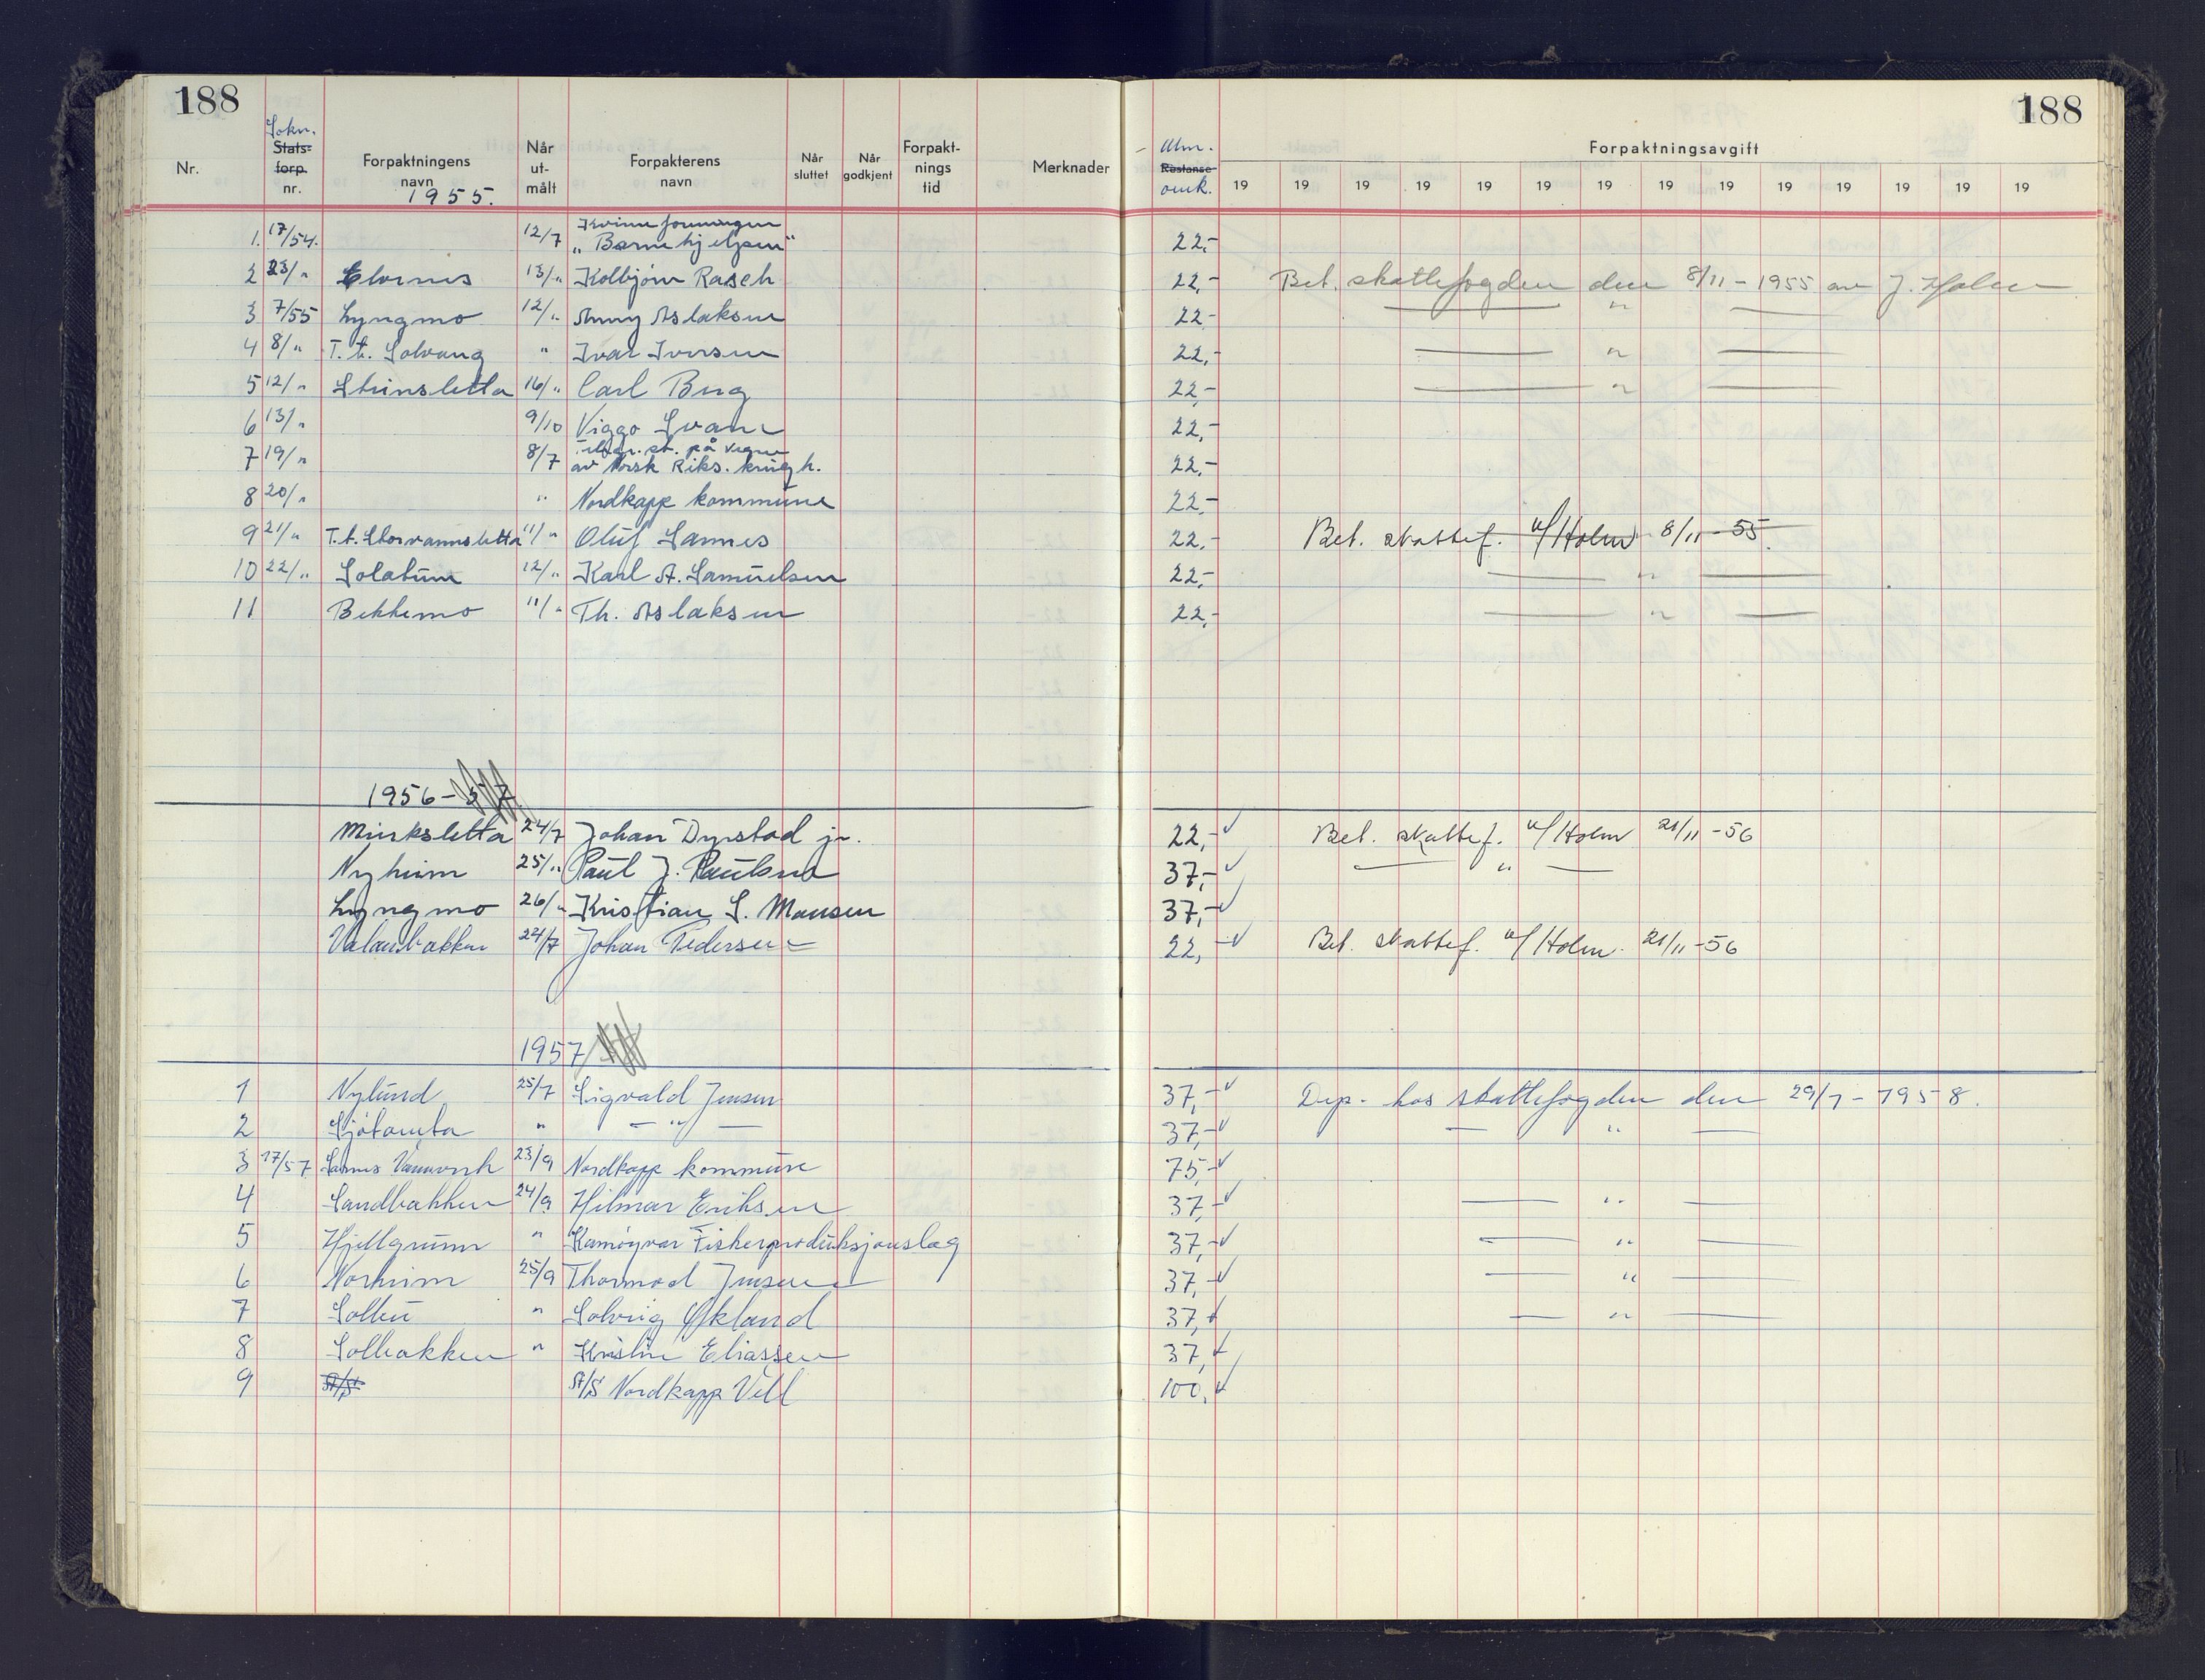 188
188
Nr.
Sokn.
Stats-
forp.
nr.
Forpaktningens
navn
Når
ut-
målt
Forpakterens
navn
Når
sluttet
Når
godkjent
Forpakt-
nings
tid
Merknader
Utm.
Restanse
omk.
Forpaktningsavgift
19 19 19 19 19 19 19 19 19 19 19 19 19 19
1955.
1. 17/54. 12/7 Kvinneforeningen „Barnehjelpen“ 22,-
2 23/" Elvenes 13/" Kolbjørn Rasch 22,- Bet. skattefogden den 8/11-1955 av J. Holm
3 7/55 Lyngmo 12/" Anny Aslaksen 22,- — " —
4 8/" T.t. Solvang " Ivar Iversen 22,- — " —
5 12/" Steinsletta 16/" Carl Berg 22,- — " —
6 13/" 9/10 Viggo Svane 22,-
7 19/" 8/7 Telegr.st. på vegne av Norsk Riks.kringk. 22,-
8 20/" " Nordkapp kommune 22,-
9 21/" T.t. Storvannsletta 11/" Oluf Sarnes 22,- Bet. skattef. v/Holm 8/11-55.
10 22/" Solatun 12/" Karl A. Samuelsen 22,- — " —
11 Bekkemo 11/" Th. Aslaksen 22,- — " —
1956-57
Minksletta 24/7 Johan Dyrstad jr. 22,- Bet. skattef. v/Holm 21/11-56
Nyheim 25/" Paul J. Paulsen 37,- — " —
Lyngmo 26/" Kristian S. Monsen 37,-
Valanbakken 24/7 Johan Pedersen 22,- Bet. skattef. v/Holm. 21/11-56
1957
1 Nylund 25/7 Sigvald Jensen 37,- Dep. hos skattefogden den 29/1-1958.
2 Sjøtomta " — " — 37,- — " —
3 17/57 Sarnes Vannverk 23/9 Nordkapp kommune 75,-
4 Sandbakken 24/9 Hilmar Eriksen 37,- — " —
5 Hjellgrunn " Kamøyvær Fiskerproduksjonslag 37,- — " —
6 Norheim 25/9 Thormod Jensen 37,- — " —
7 Solbu " Solveig Økland 37,- — " —
8 Solbakken " Kristine Eliassen 37,-
9 A/S A/S Nordkapp Vell 100,-